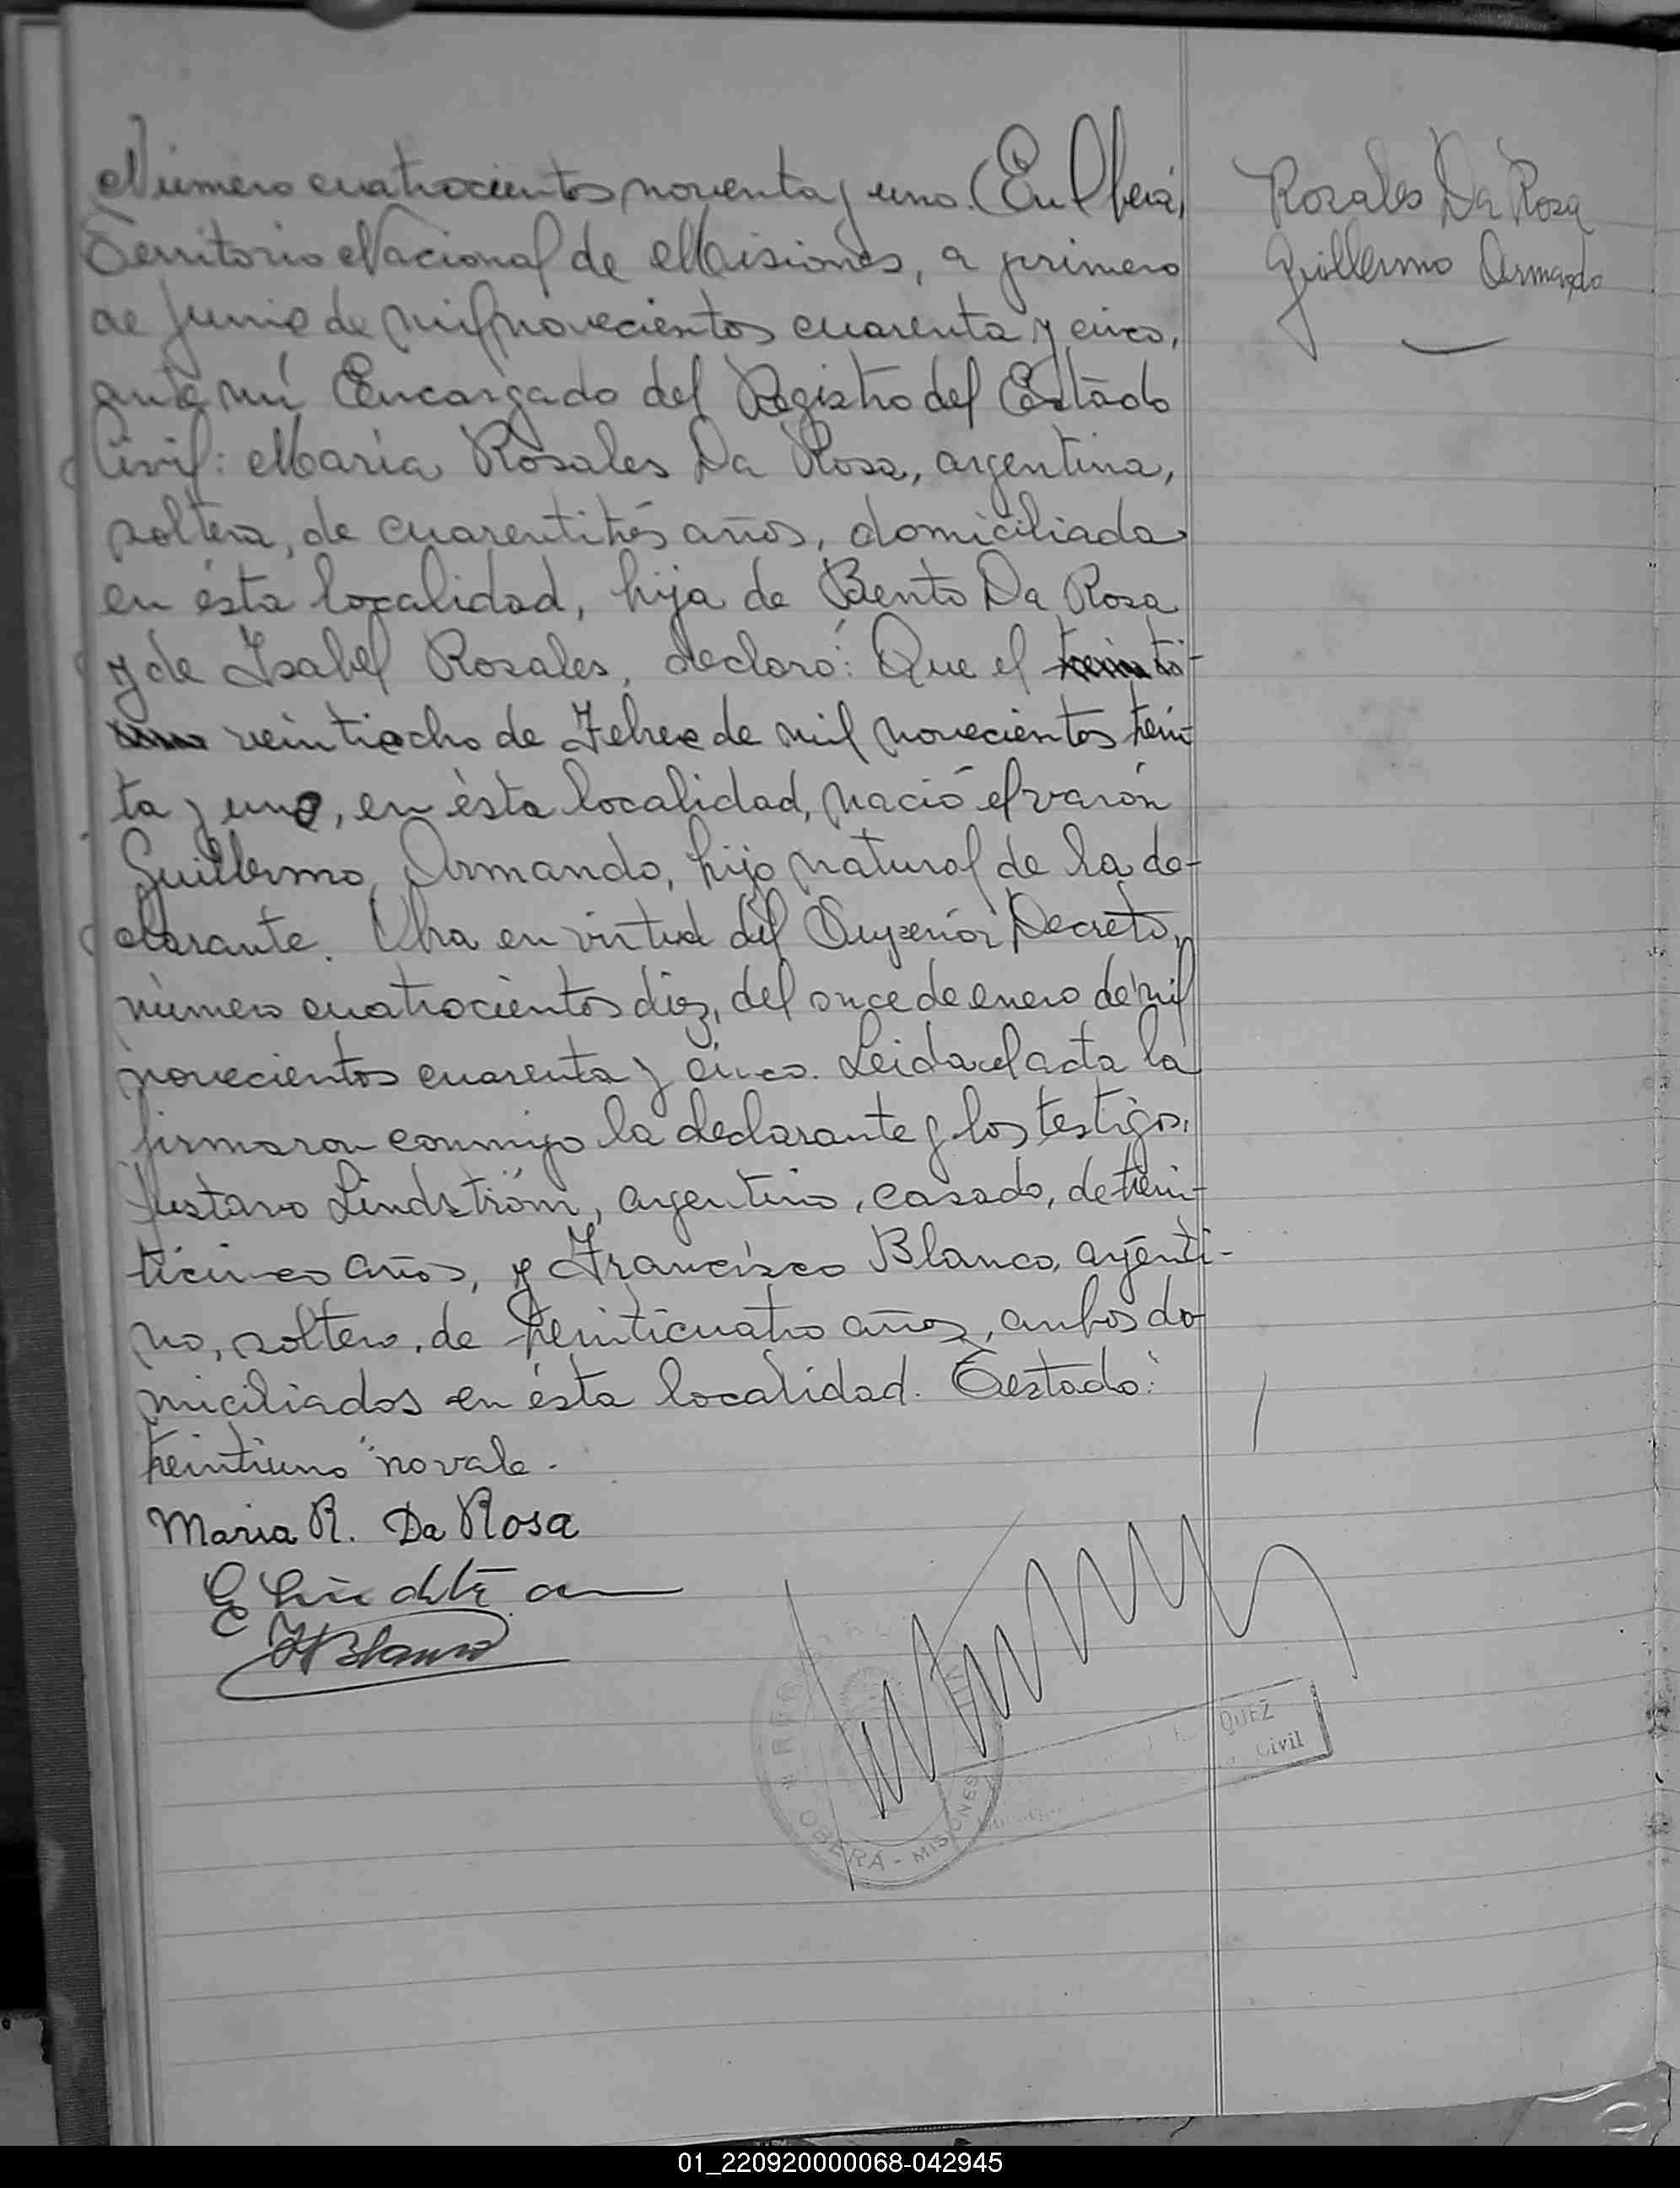 Número cuatrocientos noventa y uno. En Oberá,
Territorio Nacional de Misiones, a primero
de Junio de mil novecientos cuarenta y cinco,
ante mí Encargado del Registro del Estado
Civil: María Rosales Da Rosa, argentina,
soltera, de cuarentitrés años, domiciliada
en ésta localidad, hija de Bento Da Rosa
y de Isabel Rosales, declaró: Que el treinti-
uno veintiocho de Febro de mil novecientos trein-
ta y uno, en ésta localidad, nació el varón
Guillermo Armando, hijo natural de la de-
clarante. Obra en virtud del Superior Decreto,
número cuatrocientos diez, del once de enero de mil
novecientos cuarenta y cinco. Leida el acta la
firmaron conmigo la declarante y los testigos,
Gustavo Lindström, argentino, casado, de trein-
ticinco años, y Francisco Blanco, argenti-
no, soltero, de treinticuatro años, ambos do-
miciliados en ésta localidad. Testado:
treintiuno "no vale.
Maria R. Da Rosa
FBlanco
Rosales Da Rosa
Guillermo Armando
OBERA - MISIONES
QUEZ
Civil
01_220920000068-042945